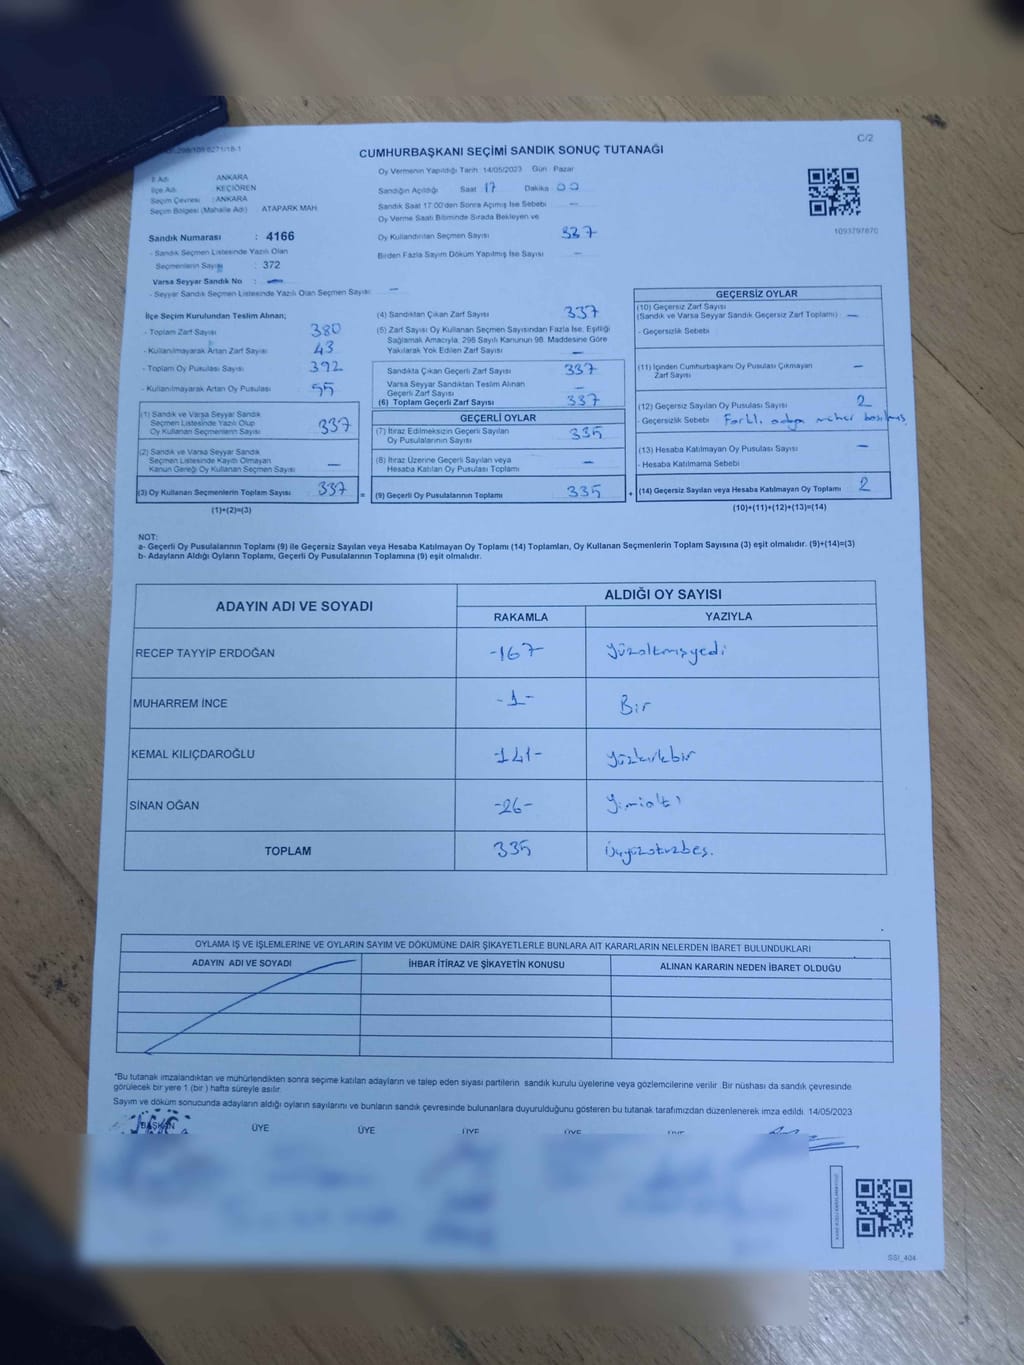 C/2
CUMHURBAŞKANI SEÇİMİ SANDIK SONUÇ TUTANAĞI
İl Adı : ANKARA
İlçe Adı : KEÇİÖREN
Seçim Çevresi : ANKARA
Seçim Bölgesi (Mahalle Adı) : ATAPARK MAH.
Sandık Numarası : 4166
- Sandık Seçmen Listesinde Yazılı Olan
Seçmenlerin Sayısı : 372
Varsa Seyyar Sandık No : —
- Seyyar Sandık Seçmen Listesinde Yazılı Olan Seçmen Sayısı: —
Oy Vermenin Yapıldığı Tarih :14/05/2023 Gün : Pazar
Sandığın Açıldığı Saat 17 Dakika 00
Sandık Saat 17:00'den Sonra Açılmış İse Sebebi —
Oy Verme Saati Bitiminde Sırada Bekleyen ve
Oy Kullandırılan Seçmen Sayısı 337
Birden Fazla Sayım Döküm Yapılmış İse Sayısı —
1093797870
İlçe Seçim Kurulundan Teslim Alınan;
- Toplam Zarf Sayısı 380
- Kullanılmayarak Artan Zarf Sayısı 43
- Toplam Oy Pusulası Sayısı 392
- Kullanılmayarak Artan Oy Pusulası 55
(1) Sandık ve Varsa Seyyar Sandık
Seçmen Listesinde Yazılı Olup
Oy Kullanan Seçmenlerin Sayısı 337
(2) Sandık ve Varsa Seyyar Sandık
Seçmen Listesinde Kayıtlı Olmayan
Kanun Gereği Oy Kullanan Seçmen Sayısı —
(3) Oy Kullanan Seçmenlerin Toplam Sayısı 337 =
(1)+(2)=(3)
(4) Sandıktan Çıkan Zarf Sayısı 337
(5) Zarf Sayısı Oy Kullanan Seçmen Sayısından Fazla İse, Eşitliği
Sağlamak Amacıyla, 298 Sayılı Kanunun 98. Maddesine Göre
Yakılarak Yok Edilen Zarf Sayısı —
Sandıkta Çıkan Geçerli Zarf Sayısı 337
Varsa Seyyar Sandıktan Teslim Alınan
Geçerli Zarf Sayısı —
(6) Toplam Geçerli Zarf Sayısı 337
GEÇERLİ OYLAR
(7) İtiraz Edilmeksizin Geçerli Sayılan
Oy Pusulalarının Sayısı 335
(8) İtiraz Üzerine Geçerli Sayılan veya
Hesaba Katılan Oy Pusulası Toplamı —
(9) Geçerli Oy Pusulalarının Toplamı 335 +
GEÇERSİZ OYLAR
(10) Geçersiz Zarf Sayısı
(Sandık ve Varsa Seyyar Sandık Geçersiz Zarf Toplamı) : —
- Geçersizlik Sebebi
(11) İçinden Cumhurbaşkanı Oy Pusulası Çıkmayan
Zarf Sayısı —
(12) Geçersiz Sayılan Oy Pusulası Sayısı 2
- Geçersizlik Sebebi
(13) Hesaba Katılmayan Oy Pusulası Sayısı —
- Hesaba Katılmama Sebebi
(14) Geçersiz Sayılan veya Hesaba Katılmayan Oy Toplamı 2
(10)+(11)+(12)+(13)=(14)
NOT:
a- Geçerli Oy Pusulalarının Toplamı (9) ile Geçersiz Sayılan veya Hesaba Katılmayan Oy Toplamı (14) Toplamları, Oy Kullanan Seçmenlerin Toplam Sayısına (3) eşit olmalıdır. (9)+(14)=(3)
b- Adayların Aldığı Oyların Toplamı, Geçerli Oy Pusulalarının Toplamına (9) eşit olmalıdır.
ADAYIN ADI VE SOYADI ALDIĞI OY SAYISI
RAKAMLA YAZIYLA
RECEP TAYYİP ERDOĞAN -167- Yüzaltmışyedi
MUHARREM İNCE -1- Bir
KEMAL KILIÇDAROĞLU -141- Yüzkırkbir
SİNAN OĞAN -26- Yirmialtı
TOPLAM 335 Üçyüzotuzbeş.
OYLAMA İŞ VE İŞLEMLERİNE VE OYLARIN SAYIM VE DÖKÜMÜNE DAİR ŞİKAYETLERLE BUNLARA AİT KARARLARIN NELERDEN İBARET BULUNDUKLARI
ADAYIN ADI VE SOYADI İHBAR İTİRAZ VE ŞİKAYETİN KONUSU ALINAN KARARIN NEDEN İBARET OLDUĞU
*Bu tutanak imzalandıktan ve mühürlendikten sonra seçime katılan adayların ve talep eden siyasi partilerin sandık kurulu üyelerine veya gözlemcilerine verilir. Bir nüshası da sandık çevresinde
görülecek bir yere 1 (bir) hafta süreyle asılır.
Sayım ve döküm sonucunda adayların aldığı oyların sayılarını ve bunların sandık çevresinde bulunanlara duyurulduğunu gösteren bu tutanak tarafımızdan düzenlenerek imza edildi. 14/05/2023
BAŞKAN ÜYE ÜYE ÜYE ÜYE ÜYE
SSI_404